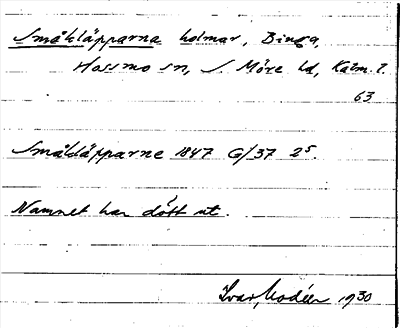 Småkläpparna holmar, Binga,
Hossmo sn, S. Möre hd, Kalm. l.
63
Småkläpparne 1847 G/37 2⁵.
Namnet har dött ut.
Ivar Modéer 1930